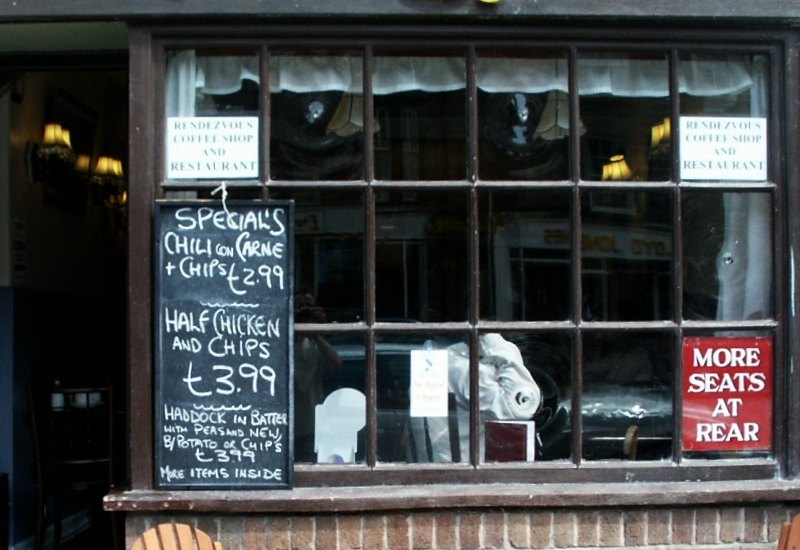 RENDEZVOUS
COFFEE SHOP
AND
RESTAURANT
RENDEZVOUS
COFFEE SHOP
AND
RESTAURANT
SPECIAL'S
CHILI CON CARNE
+ CHIPS £2.99
HALF CHICKEN
AND CHIPS
£3.99
HADDOCK IN BATTER
WITH PEAS AND NEW
B/POTATO OR CHIPS
£399
MORE ITEMS INSIDE
MORE
SEATS
AT
REAR